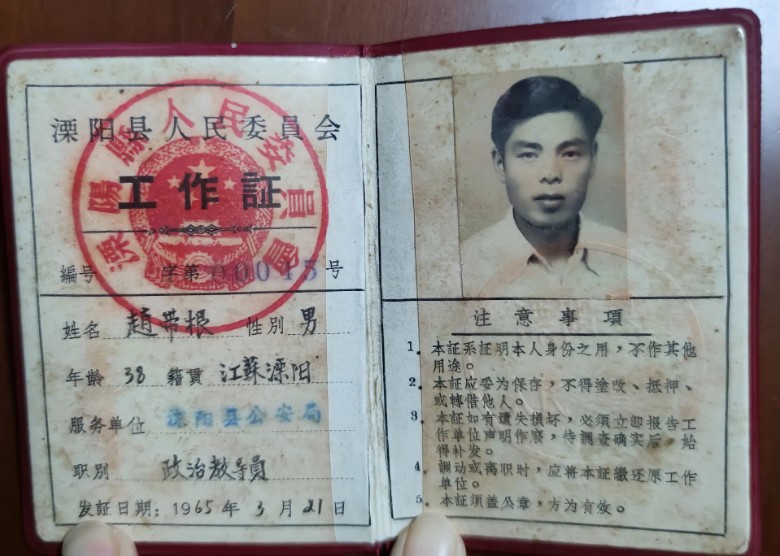 溧阳县人民委員会
溧陽縣人民委員會
工作証
編号 字第 00015 号
姓名 趙带根 性别 男
年龄 38 籍貫 江蘇溧阳
服务单位 溧阳县公安局
职别 政治教导員
发証日期：1965年3月21日
注意事項
1. 本証系証明本人身份之用，不作其他
用途。
2. 本証应妥为保存，不得塗改、抵押、
或轉借他人。
3. 本証如有遺失損坏，必須立即报告工
作单位声明作廢，待調查确实后，始
得补发。
4. 調动或离职时，应将本証繳还原工作
单位。
5. 本証須盖公章，方为有效。